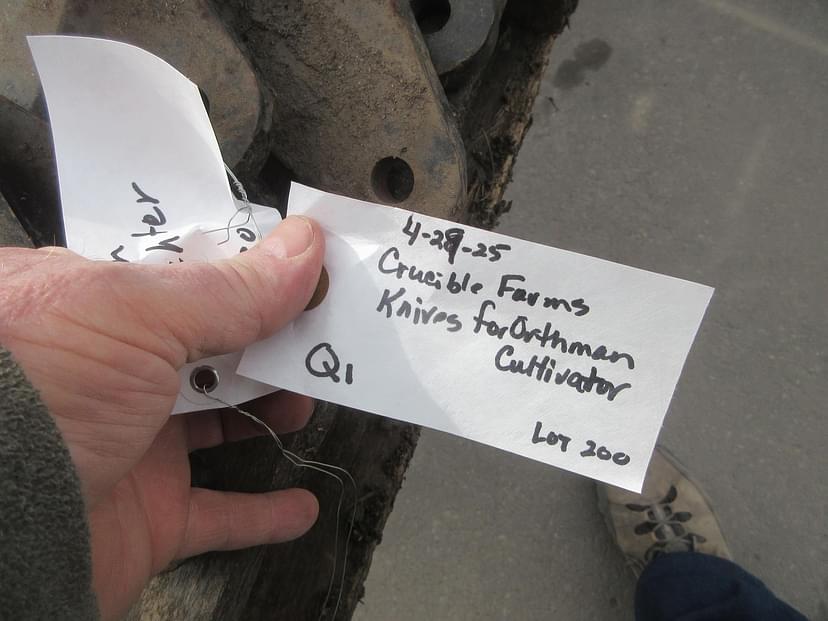 4-29-25
Crucible Farms
Knives for Orthman
Cultivator
Q1
LOT 200